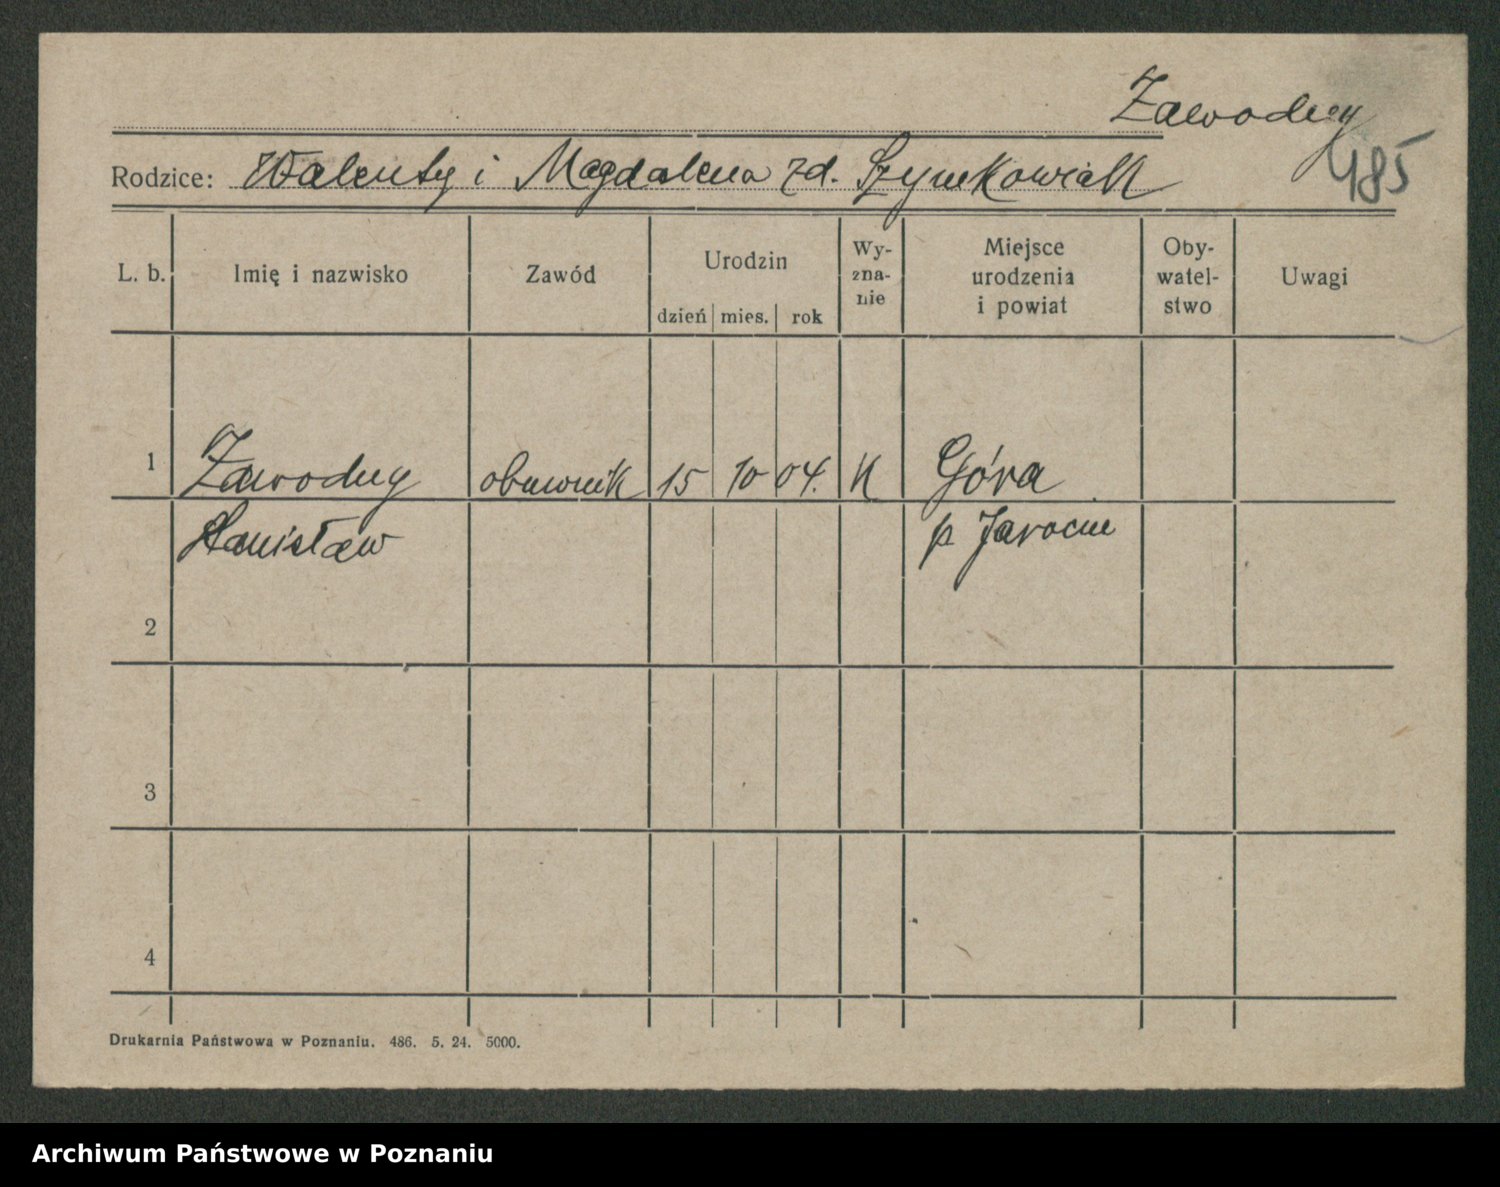 Zawodny
485
Rodzice: Walenty i Magdalena zd. Szymkowiak
L. b. Imię i nazwisko Zawód Urodzin dzień mies. rok Wy-zna-nie Miejsce urodzenia i powiat Oby-watel-stwo Uwagi
1 Zawodny obuwnik 15 10 04. K Góra
Stanisław p Jarocin
2
3
4
Drukarnia Państwowa w Poznaniu. 486. 5. 24. 5000.
Archiwum Państwowe w Poznaniu